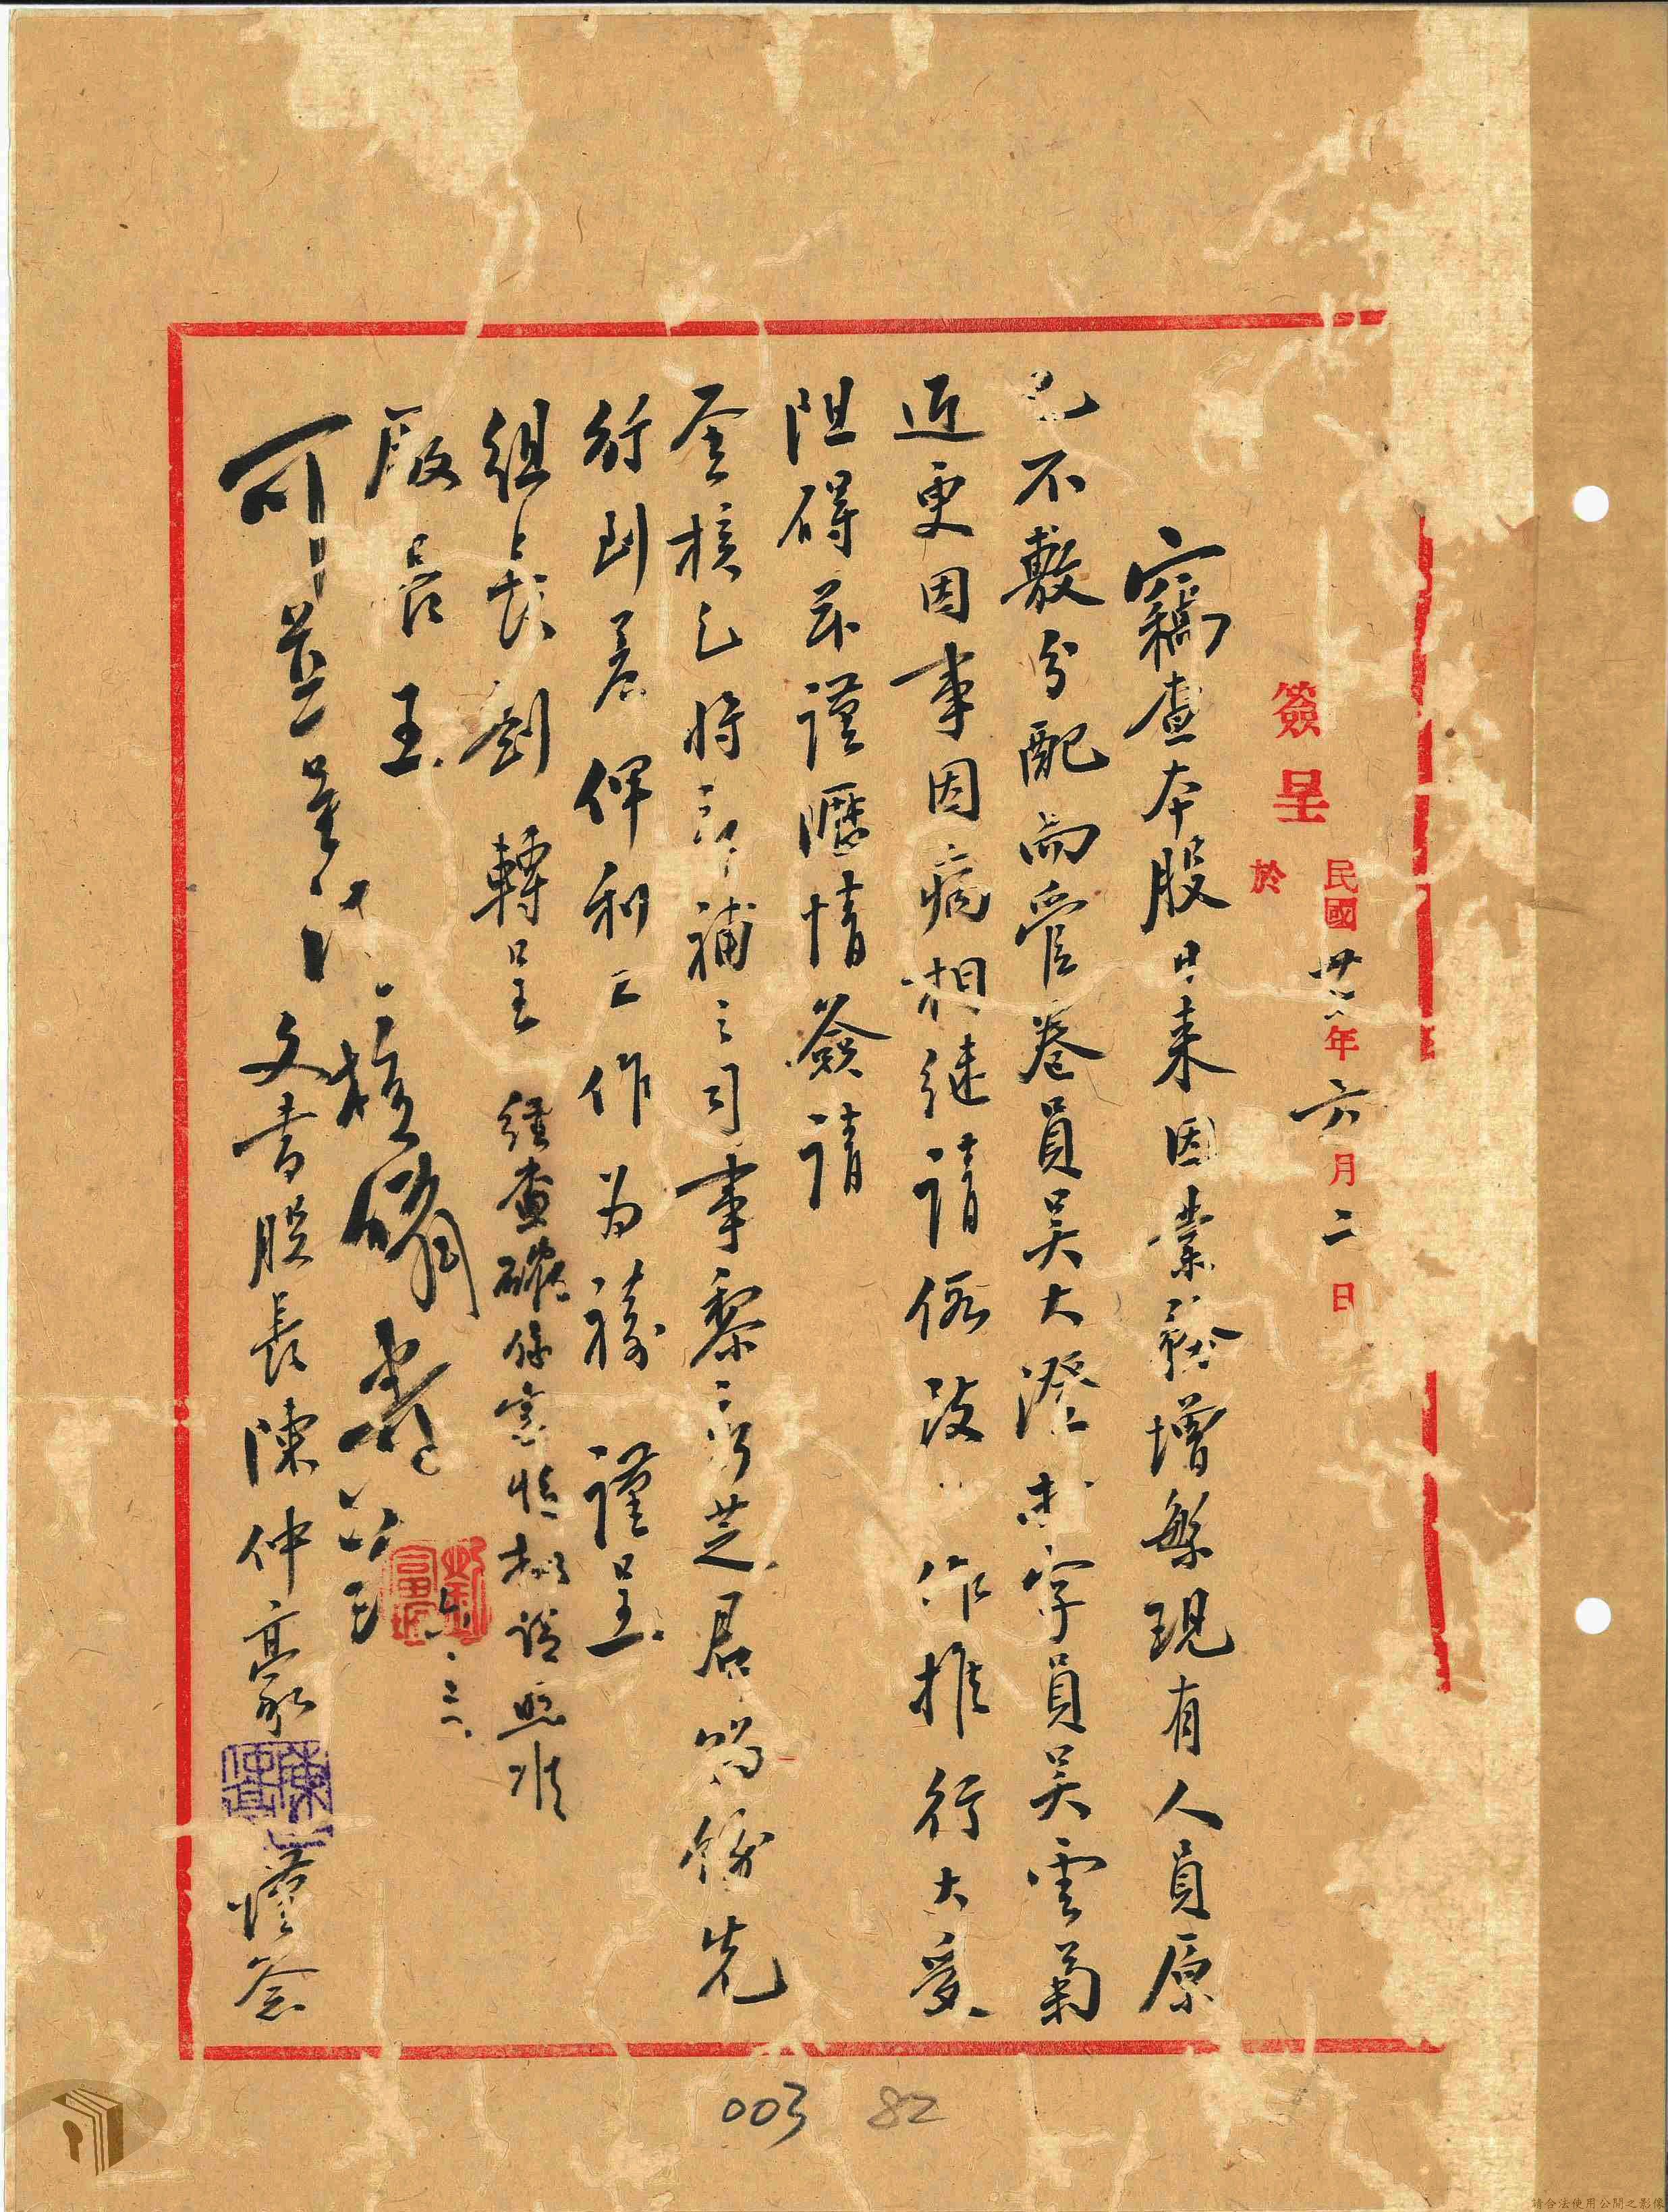 簽呈 於
民國卅六年六月二日
竊查本股日來因業務增繁現有人員原
已不敷分配而管卷員吴大澄書字員吴雲菊
近更因事因病相継請假致工作推行大受
阻碍茲謹瀝情簽請
鑒核乞將新補之司事黎秀芝君飭餙先
行到差俾利工作为禱 謹呈
組長劉 轉呈
廠長王
文書股長陳仲豪 謹签
經查確係實情擬請照准
劉
六、二、
可
陳仲豪
003 82
請合法使用公開之影像